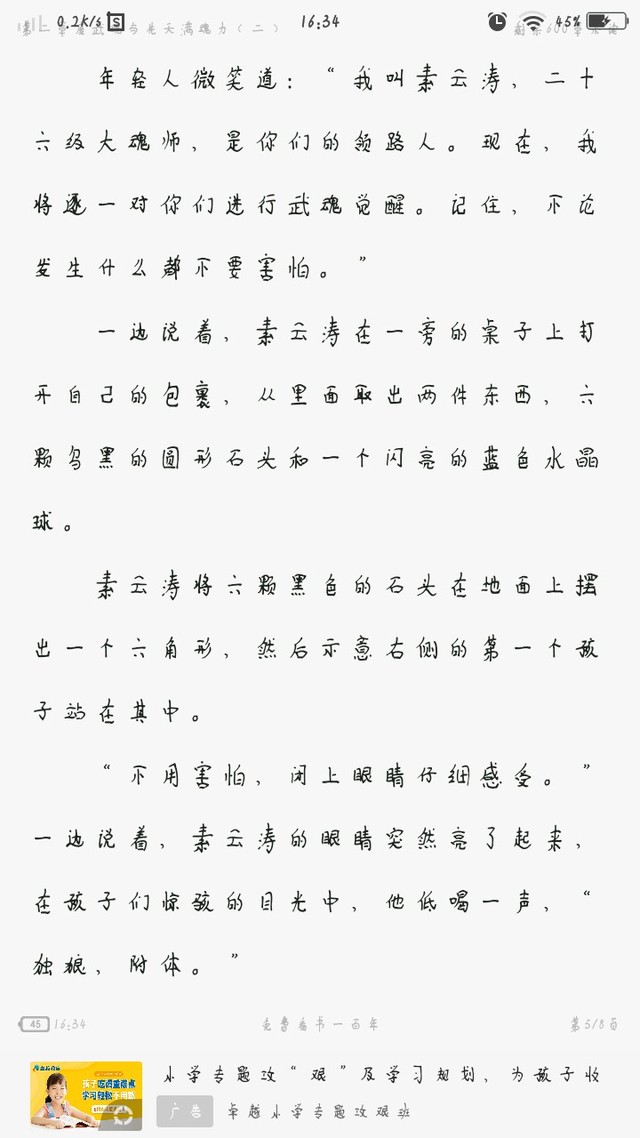 0.2K/s S 16:34 45%
年轻人微笑道：“我叫素云涛，二十
六级大魂师，是你们的领路人。现在，我
将逐一对你们进行武魂觉醒。记住，不论
发生什么都不要害怕。”
一边说着，素云涛在一旁的桌子上打
开自己的包裹，从里面取出两件东西，六
颗乌黑的圆形石头和一个闪亮的蓝色水晶
球。
素云涛将六颗黑色的石头在地面上摆
出一个六角形，然后示意右侧的第一个孩
子站在其中。
“不用害怕，闭上眼睛仔细感受。”
一边说着，素云涛的眼睛突然亮了起来，
在孩子们惊骇的目光中，他低喝一声，“
独狼，附体。”
45 16:34 免费看书一百年 第5/8页
小学专题攻“艰”及学习规划，为孩子收
广告 卓越小学专题攻艰班